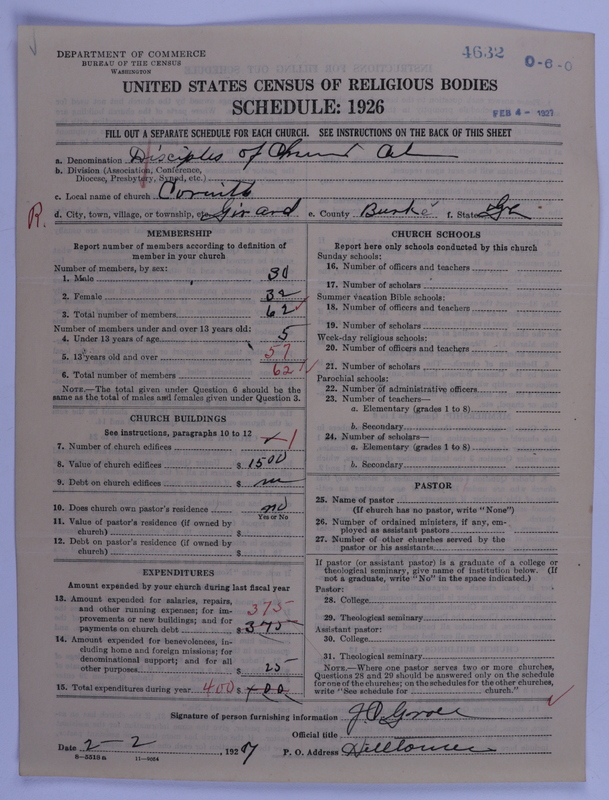 4632
0-6-0
DEPARTMENT OF COMMERCE
BUREAU OF THE CENSUS
WASHINGTON
UNITED STATES CENSUS OF RELIGIOUS BODIES
SCHEDULE: 1926
FEB 4 - 1927
FILL OUT A SEPARATE SCHEDULE FOR EACH CHURCH. SEE INSTRUCTIONS ON THE BACK OF THIS SHEET
a. Denomination Disciples of Christ
b. Division (Association, Conference,
Diocese, Presbytery, Synod, etc.)
c. Local name of church Corinth
R. d. City, town, village, or township, etc. Girard e. County Burke f. State Ga
MEMBERSHIP
Report number of members according to definition of
member in your church
Number of members, by sex:
1. Male 30
2. Female 32
3. Total number of members 62
Number of members under and over 13 years old:
4. Under 13 years of age 5
5. 13 years old and over 57
6. Total number of members 62
NOTE.—The total given under Question 6 should be the
same as the total of males and females given under Question 3.
CHURCH BUILDINGS
See instructions, paragraphs 10 to 12
7. Number of church edifices 1
8. Value of church edifices $ 1500
9. Debt on church edifices $ no
10. Does church own pastor's residence no
Yes or No
11. Value of pastor's residence (if owned by
church) $
12. Debt on pastor's residence (if owned by
church) $
EXPENDITURES
Amount expended by your church during last fiscal year
13. Amount expended for salaries, repairs,
and other running expenses; for im-
provements or new buildings; and for
payments on church debt 375 $ 375
14. Amount expended for benevolences, in-
cluding home and foreign missions; for
denominational support; and for all
other purposes $ 25
15. Total expenditures during year 400 $ 400
CHURCH SCHOOLS
Report here only schools conducted by this church
Sunday schools:
16. Number of officers and teachers
17. Number of scholars
Summer vacation Bible schools:
18. Number of officers and teachers
19. Number of scholars
Week-day religious schools:
20. Number of officers and teachers
21. Number of scholars
Parochial schools:
22. Number of administrative officers
23. Number of teachers—
a. Elementary (grades 1 to 8)
b. Secondary
24. Number of scholars—
a. Elementary (grades 1 to 8)
b. Secondary
PASTOR
25. Name of pastor
(If church has no pastor, write "None")
26. Number of ordained ministers, if any, em-
ployed as assistant pastors
27. Number of other churches served by the
pastor or his assistants
If pastor (or assistant pastor) is a graduate of a college or
theological seminary, give name of institution below. (If
not a graduate, write "No" in the space indicated.)
Pastor:
28. College
29. Theological seminary
Assistant pastor:
30. College
31. Theological seminary
NOTE.—Where one pastor serves two or more churches,
Questions 28 and 29 should be answered only on the schedule
for one of the churches; on the schedules for the other churches,
write "See schedule for church."
Signature of person furnishing information
Official title
Date 2-2, 1927 P. O. Address
8-5510a 11-9024